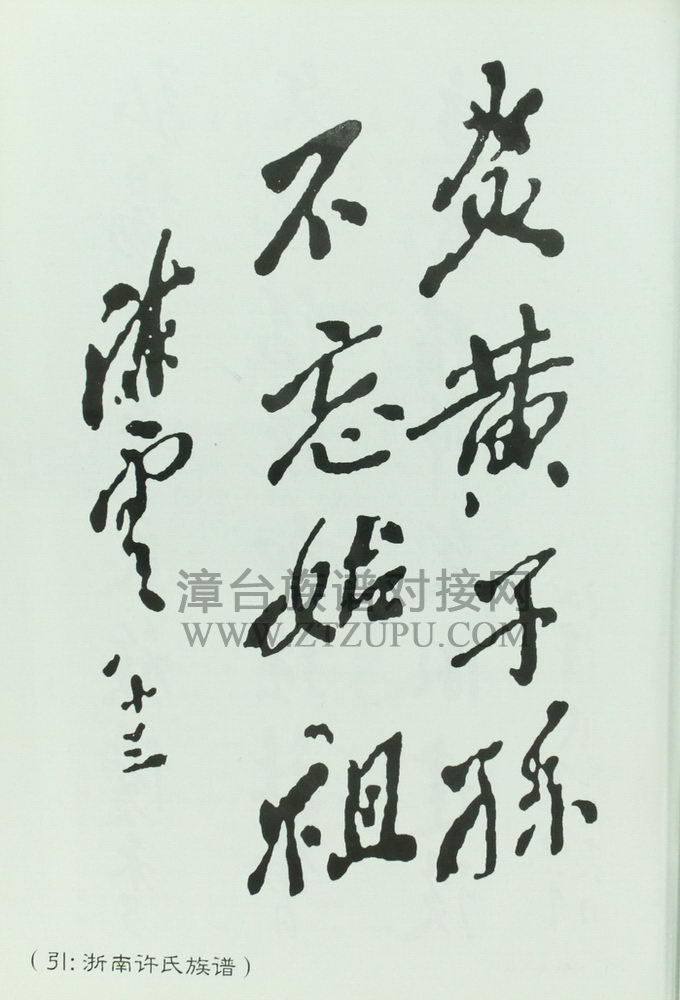 炎黄子孙
不忘始祖
陈云
八十三
漳台族谱对接网
WWW.ZTZUPU.COM
(引:浙南许氏族谱)